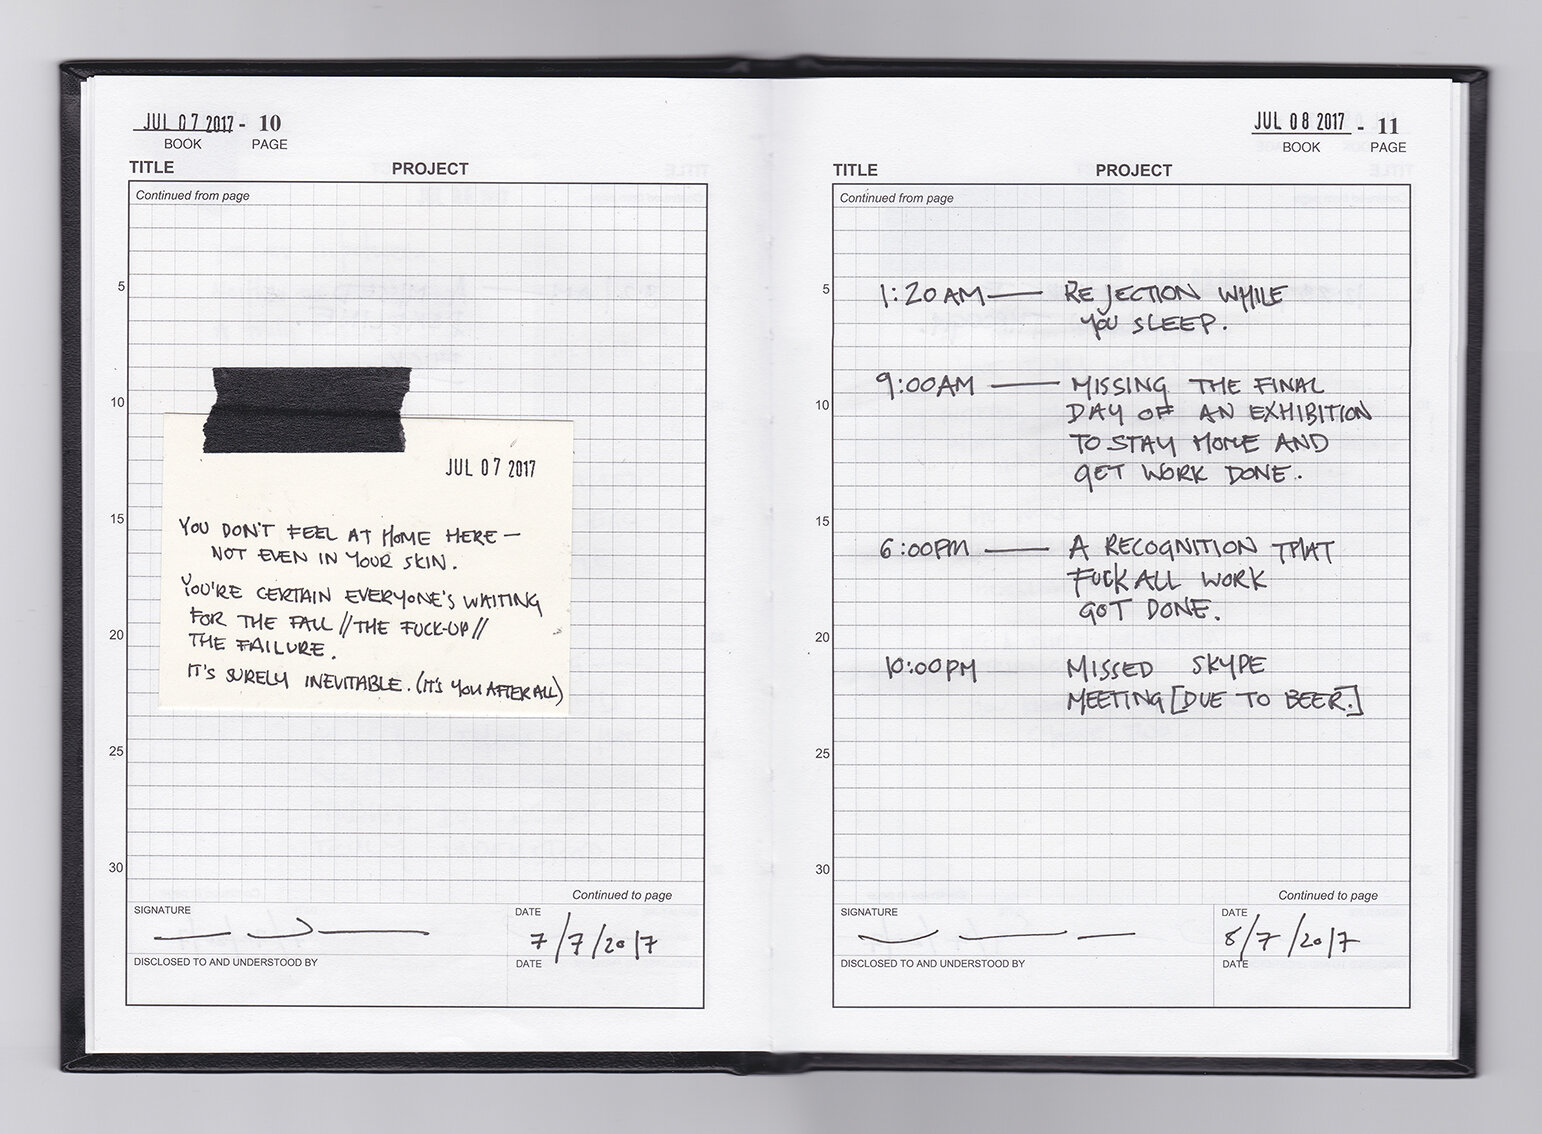 JUL 07 2017 - 10
BOOK PAGE
TITLE PROJECT
Continued from page
5
10
JUL 07 2017
15
YOU DON'T FEEL AT HOME HERE —
NOT EVEN IN YOUR SKIN.
YOU'RE CERTAIN EVERYONE'S WAITING
FOR THE FALL // THE FUCK-UP //
20
THE FAILURE.
IT'S SURELY INEVITABLE. (IT'S YOU AFTER ALL)
25
30
Continued to page
SIGNATURE DATE
7/7/2017
DISCLOSED TO AND UNDERSTOOD BY DATE
JUL 08 2017 - 11
BOOK PAGE
TITLE PROJECT
Continued from page
5
1:20AM — REJECTION WHILE
YOU SLEEP.
9:00AM — MISSING THE FINAL
10
DAY OF AN EXHIBITION
TO STAY HOME AND
GET WORK DONE.
15
6:00PM — A RECOGNITION THAT
FUCK ALL WORK
GOT DONE.
20
10:00PM MISSED SKYPE
MEETING [DUE TO BEER.]
25
30
Continued to page
SIGNATURE DATE
8/7/2017
DISCLOSED TO AND UNDERSTOOD BY DATE